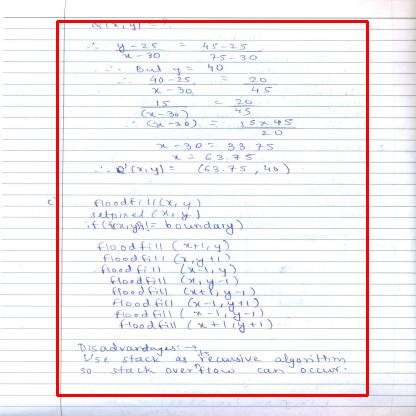 Q'(x,y) = ?
∴ y-25 / x-30 = 45-25 / 75-30
∴ But y = 40
∴ 40-25 / x-30 = 20 / 45
15 / (x-30) = 20 / 45
∴ (x-30) = 15×45 / 20
x-30 = 33.75
x = 63.75
∴ Q'(x,y) = (63.75, 40)
c) floodfill(x,y)
setpixel(x,y)
if(f(x,y)!= boundary)
floodfill (x+1,y)
floodfill (x,y+1)
floodfill (x-1,y)
floodfill (x,y-1)
floodfill (x+1,y-1)
floodfill (x-1,y+1)
floodfill (x-1,y-1)
floodfill (x+1,y+1)
Disadvantages:→
Use stack as its recursive algorithm
so stack overflow can occur.